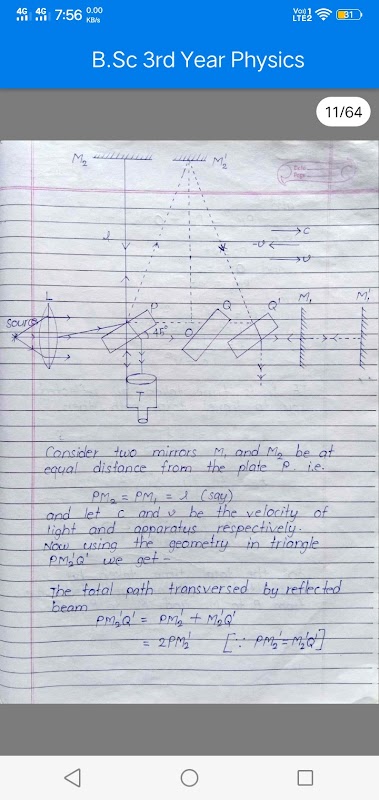 4G 4G 7:56 0.00 KB/s Vo) 1 LTE2 31
B.Sc 3rd Year Physics
11/64
Date
Page
M2 M2'
l
c
-v
v
L P Q Q' M1 M1'
Source
45°
O
T
Consider two mirrors M1 and M2 be at
equal distance from the plate P. i.e.
PM2 = PM1 = l (say)
and let c and v be the velocity of
light and apparatus respectively.
Now using the geometry in triangle
PM2'Q' we get -
The total path transversed by reflected
beam
PM2'Q' = PM2' + M2'Q'
= 2PM2' [∵ PM2' = M2'Q']